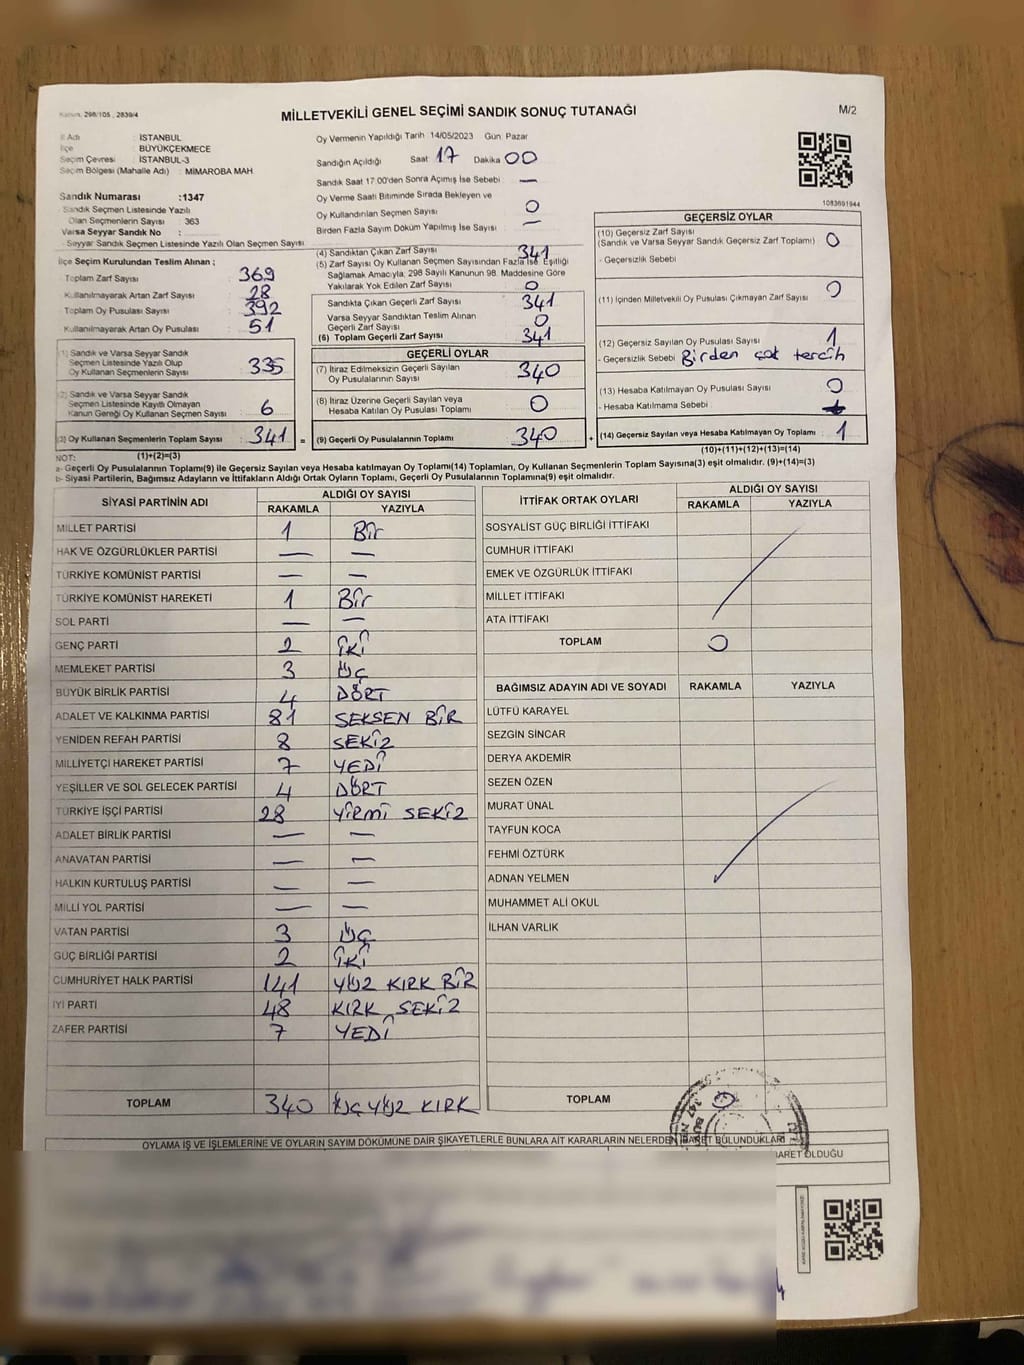 Kanun, 298/105 , 2839/4
MİLLETVEKİLİ GENEL SEÇİMİ SANDIK SONUÇ TUTANAĞI
M/2
İl Adı : İSTANBUL
İlçe : BÜYÜKÇEKMECE
Seçim Çevresi : İSTANBUL-3
Seçim Bölgesi (Mahalle Adı) : MİMAROBA MAH
Sandık Numarası :1347
Sandık Seçmen Listesinde Yazılı
Olan Seçmenlerin Sayısı : 363
Varsa Seyyar Sandık No :
Seyyar Sandık Seçmen Listesinde Yazılı Olan Seçmen Sayısı
Oy Vermenin Yapıldığı Tarih 14/05/2023 Gün Pazar
Sandığın Açıldığı Saat 17 Dakika 00
Sandık Saat 17:00'den Sonra Açımış İse Sebebi —
Oy Verme Saati Bitiminde Sırada Bekleyen ve
Oy Kullandırılan Seçmen Sayısı 0
Birden Fazla Sayım Döküm Yapılmış İse Sayısı —
1083691944
İlçe Seçim Kurulundan Teslim Alınan ;
Toplam Zarf Sayısı : 369
Kullanılmayarak Artan Zarf Sayısı : 28
Toplam Oy Pusulası Sayısı : 392
Kullanılmayarak Artan Oy Pusulası : 51
(1) Sandık ve Varsa Seyyar Sandık
Seçmen Listesinde Yazılı Olup
Oy Kullanan Seçmenlerin Sayısı : 335
(2) Sandık ve Varsa Seyyar Sandık
Seçmen Listesinde Kayıtlı Olmayan
Kanun Gereği Oy Kullanan Seçmen Sayısı : 6
(3) Oy Kullanan Seçmenlerin Toplam Sayısı : 341 =
(4) Sandıktan Çıkan Zarf Sayısı 341
(5) Zarf Sayısı Oy Kullanan Seçmen Sayısından Fazla İse, Eşitliği
Sağlamak Amacıyla, 298 Sayılı Kanunun 98. Maddesine Göre
Yakılarak Yok Edilen Zarf Sayısı : 0
Sandıkta Çıkan Geçerli Zarf Sayısı 341
Varsa Seyyar Sandıktan Teslim Alınan
Geçerli Zarf Sayısı 0
(6) Toplam Geçerli Zarf Sayısı 341
GEÇERLİ OYLAR
(7) İtiraz Edilmeksizin Geçerli Sayılan
Oy Pusulalarının Sayısı 340
(8) İtiraz Üzerine Geçerli Sayılan veya
Hesaba Katılan Oy Pusulası Toplamı 0
(9) Geçerli Oy Pusulalarının Toplamı 340 +
GEÇERSİZ OYLAR
(10) Geçersiz Zarf Sayısı
(Sandık ve Varsa Seyyar Sandık Geçersiz Zarf Toplamı) 0
- Geçersizlik Sebebi :
(11) İçinden Milletvekili Oy Pusulası Çıkmayan Zarf Sayısı 0
(12) Geçersiz Sayılan Oy Pusulası Sayısı 1
- Geçersizlik Sebebi : Birden çok tercih
(13) Hesaba Katılmayan Oy Pusulası Sayısı 0
- Hesaba Katılmama Sebebi :
(14) Geçersiz Sayılan veya Hesaba Katılmayan Oy Toplamı 1
NOT: (1)+(2)=(3)
(10)+(11)+(12)+(13)=(14)
a- Geçerli Oy Pusulalarının Toplamı(9) ile Geçersiz Sayılan veya Hesaba katılmayan Oy Toplamı(14) Toplamları, Oy Kullanan Seçmenlerin Toplam Sayısına(3) eşit olmalıdır. (9)+(14)=(3)
b- Siyasi Partilerin, Bağımsız Adayların ve İttifakların Aldığı Ortak Oyların Toplamı, Geçerli Oy Pusulalarının Toplamına(9) eşit olmalıdır.
SİYASİ PARTİNİN ADI ALDIĞI OY SAYISI
RAKAMLA YAZIYLA
MİLLET PARTİSİ 1 Bir
HAK VE ÖZGÜRLÜKLER PARTİSİ — —
TÜRKİYE KOMÜNİST PARTİSİ — —
TÜRKİYE KOMÜNİST HAREKETİ 1 Bir
SOL PARTİ — —
GENÇ PARTİ 2 İKİ
MEMLEKET PARTİSİ 3 ÜÇ
BÜYÜK BİRLİK PARTİSİ 4 DÖRT
ADALET VE KALKINMA PARTİSİ 81 SEKSEN BİR
YENİDEN REFAH PARTİSİ 8 SEKİZ
MİLLİYETÇİ HAREKET PARTİSİ 7 YEDİ
YEŞİLLER VE SOL GELECEK PARTİSİ 4 DÖRT
TÜRKİYE İŞÇİ PARTİSİ 28 YİRMİ SEKİZ
ADALET BİRLİK PARTİSİ — —
ANAVATAN PARTİSİ — —
HALKIN KURTULUŞ PARTİSİ — —
MİLLİ YOL PARTİSİ — —
VATAN PARTİSİ 3 ÜÇ
GÜÇ BİRLİĞİ PARTİSİ 2 İKİ
CUMHURİYET HALK PARTİSİ 141 YÜZ KIRK BİR
İYİ PARTİ 48 KIRK SEKİZ
ZAFER PARTİSİ 7 YEDİ
TOPLAM 340 ÜÇ YÜZ KIRK
İTTİFAK ORTAK OYLARI ALDIĞI OY SAYISI
RAKAMLA YAZIYLA
SOSYALİST GÜÇ BİRLİĞİ İTTİFAKI
CUMHUR İTTİFAKI
EMEK VE ÖZGÜRLÜK İTTİFAKI
MİLLET İTTİFAKI
ATA İTTİFAKI
TOPLAM 0
BAĞIMSIZ ADAYIN ADI VE SOYADI RAKAMLA YAZIYLA
LÜTFÜ KARAYEL
SEZGİN SİNCAR
DERYA AKDEMİR
SEZEN ÖZEN
MURAT ÜNAL
TAYFUN KOCA
FEHMİ ÖZTÜRK
ADNAN YELMEN
MUHAMMET ALİ OKUL
İLHAN VARLIK
TOPLAM 0
OYLAMA İŞ VE İŞLEMLERİNE VE OYLARIN SAYIM DÖKÜMÜNE DAİR ŞİKAYETLERLE BUNLARA AİT KARARLARIN NELERDEN İBARET BULUNDUKLARI
İBARET OLDUĞU